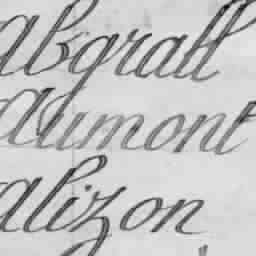 Abgrall
Aumont
Alizon